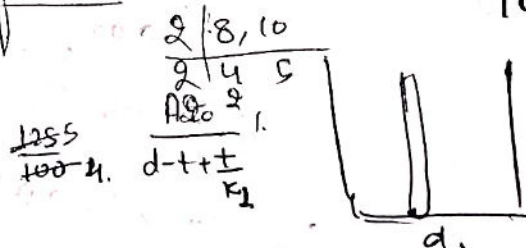 2 | 8, 10
2 | 4 5
2
d-t+t/K
125 5
100 4.
d